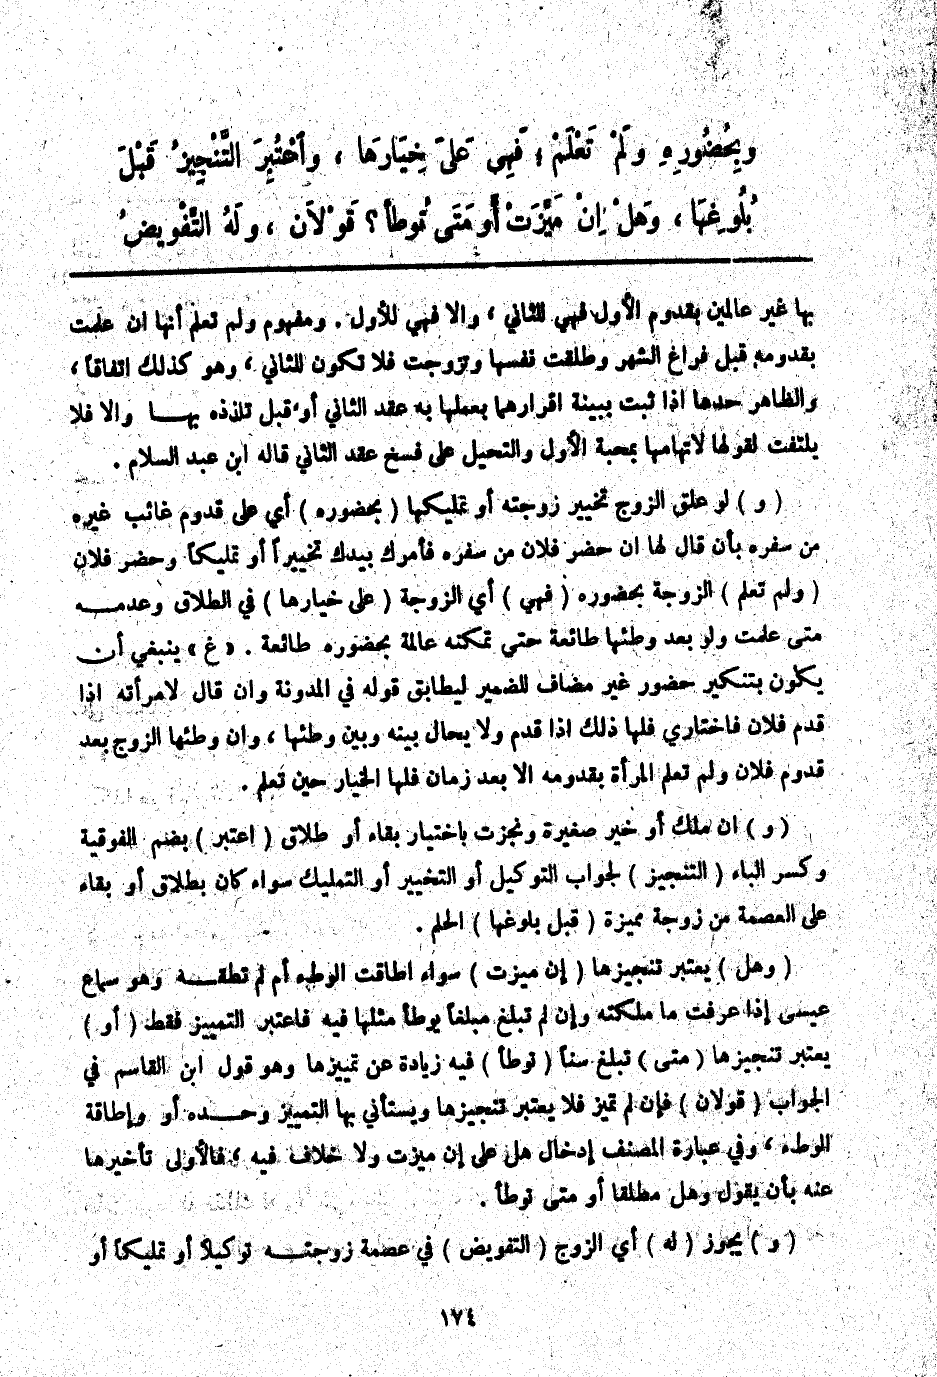 وبِحُضُورِهِ ولَمْ تَعْلَمْ ؛ فَهِي عَلىَ خِيَارَها ، وآعْتُبِرَ التَّنْجِيزُ قَبْلَ
بُلُوغِهَا ، وَهَلْ إنْ مَيَّزَتْ أَو مَتَى تُوطأ ؟ قَوْلاَن ، ولَهُ التَّفْويضُ
بها غير عالمين بقدوم الأول فهي للثاني ، والا فهي للأول . ومفهوم ولم تعلم أنها ان علمت
بقدومه قبل فراغ الشهر وطلقت نفسها وتزوجت فلا تكون للثاني ، وهو كذلك اتفاقاً ،
والظاهر حدها اذا ثبت ببينة اقرارهما بعملها به عقد الثاني أو قبل تلذذه بهـــا والا فلا
يلتفت لقولها لاتهامها بمحبة الأول والتحيل على فسخ عقد الثاني قاله ابن عبد السلام .
( و ) لو علق الزوج تخيير زوجته أو تمليكها ( بحضوره ) أي على قدوم غائب غيره
من سفره بأن قال لها ان حضر فلان من سفره فأمرك بيدك تخييراً أو تمليكاً وحضر فلان
( ولم تعلم ) الزوجة بحضوره ( فهي ) أي الزوجة ( على خيارها ) في الطلاق وعدمـــه
متى علمت ولو بعد وطئها طائعة حتى تمكنه عالمة بحضوره طائعة . « غ » ينبغي أن
يكون بتنكير حضور غير مضاف للضمير ليطابق قوله في المدونة وان قال لامرأته اذا
قدم فلان فاختاري فلها ذلك اذا قدم ولا يحال بينه وبين وطئها ، وان وطئها الزوج بعد
قدوم فلان ولم تعلم المرأة بقدومه الا بعد زمان فلها الخيار حين تعلم .
( و ) ان ملك أو خير صغيرة ونجزت باختيار بقاء أو طلاق ( اعتبر ) بضم الفوقية
وكسر الباء ( التنجيز ) لجواب التوكيل أو التخيير أو التمليك سواء كان بطلاق أو بقاء
على العصمة من زوجة مميزة ( قبل بلوغها ) الحلم .
( وهل ) يعتبر تنجيزها ( إن ميزت ) سواء اطاقت الوطء أم لم تطقـــه وهو سماع
عيسى إذا عرفت ما ملكته وإن لم تبلغ مبلغاً يوطأ مثلها فيه فاعتبر التمييز فقط ( أو )
يعتبر تنجيزها ( متى ) تبلغ سناً ( توطأ ) فيه زيادة عن تمييزها وهو قول ابن القاسم في
الجواب ( قولان ) فإن لم تميز فلا يعتبر تنجيزها ويستأني بها التمييز وحـــده أو وإطاقة
الوطء ، وفي عبارة المصنف إدخال هل على إن ميزت ولا خلاف فيه ، فالأولى تأخيرها
عنه بأن يقول وهل مطلقا أو متى توطأ .
( و ) يجوز ( له ) أي الزوج ( التفويض ) في عصمة زوجتـــه توكيلاً أو تمليكاً أو
١٧٤